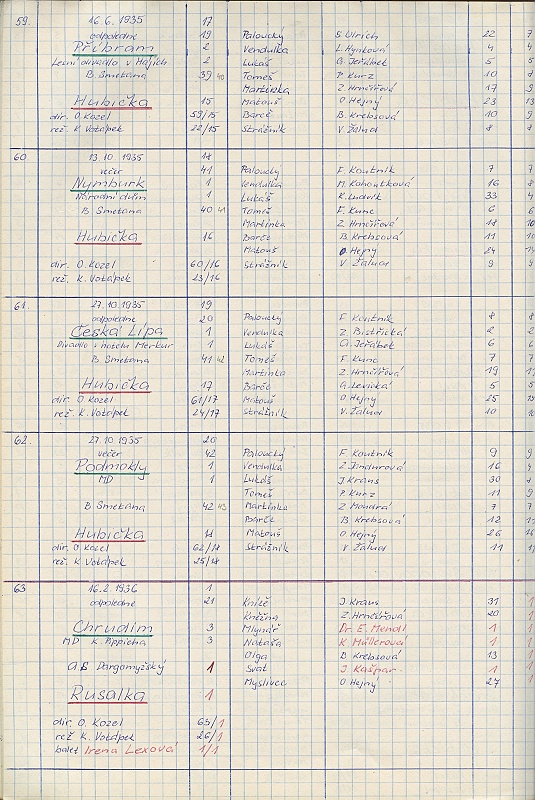 59. 16.6.1935 17
odpoledne 19 Paloucký S. Ulrich 22 7
Příbram 2 Vendulka L. Hynková 4 4
Lesní divadlo v Hájích 2 Lukáš G. Jeřábek 5 5
B Smetana 39 40 Tomeš P. Kurz 10 8
Martinka Z. Hrnčířová 17 9
Hubička 15 Matouš O Hejný 23 13
dir. O. Kozel 59/15 Barče B. Krebsová 10 9
rež. K. Votápek 22/15 Strážník V. Žalud 8 8
60 13.10.1935 18
večer 41 Paloucký F. Koutník 7 7
Nymburk 1 Vendulka M. Kohoutková 16 8
Národní dům 1 Lukáš K. Ludvík 33 4
B Smetana 40 41 Tomeš F. Kunc 6 6
Martinka Z. Hrnčířová 18 10
Hubička 16 Barče B Krebsová 11 11
Matouš O Hejný 24 14
dir. O. Kozel 60/16 Strážník V Žalud 9 9
rež. K. Votápek 23/16
61. 27.10.1935 19
odpoledne 20 Paloucký F Koutník 8 8
Česká Lípa 1 Vendulka Z. Bistřická 2 2
Divadlo v hotelu Merkur 1 Lukáš G. Jeřábek 6 6
B Smetana 41 42 Tomeš F Kunc 7 7
Martinka Z. Hrnčířová 19 11
Hubička 17 Barče G. Levická 5 5
dir O. Kozel 61/17 Matouš O Hejný 25 15
rež K. Votápek 24/17 Strážník V. Žalud 10 10
62. 27.10 1935 20
večer 42 Paloucký F. Koutník 9 9
Podmokly 1 Vendulka Z Jindurová 16 4
MD 1 Lukáš J Kraus 30 8
Tomeš P. Kurz 11 9
B Smetana 42 43 Martinka Z Mondrá 7 7
Barče B Krebsová 12 12
Hubička 18 Matouš O. Hejný 26 16
dir. O. Kozel 62/18 Strážník V Žalud 11 11
rež K. Votápek 25/18
63 16.2.1936 1
odpoledne 21 Kníže J. Kraus 31 1
Kněžna Z. Hrnčířová 20 1
Chrudim 3 Mlynář Dr. E. Mendl 1 1
MD K. Pippicha 3 Nataša K Müllerová 1 1
Olga B Krebsová 13 1
A S Dargomyžský 1 Svat J. Kašpar 1 1
Myslivec O. Hejný 27 1
Rusalka 1
dir. O. Kozel 63/1
rež K. Votápek 26/1
balet Irena Lexová 1/1